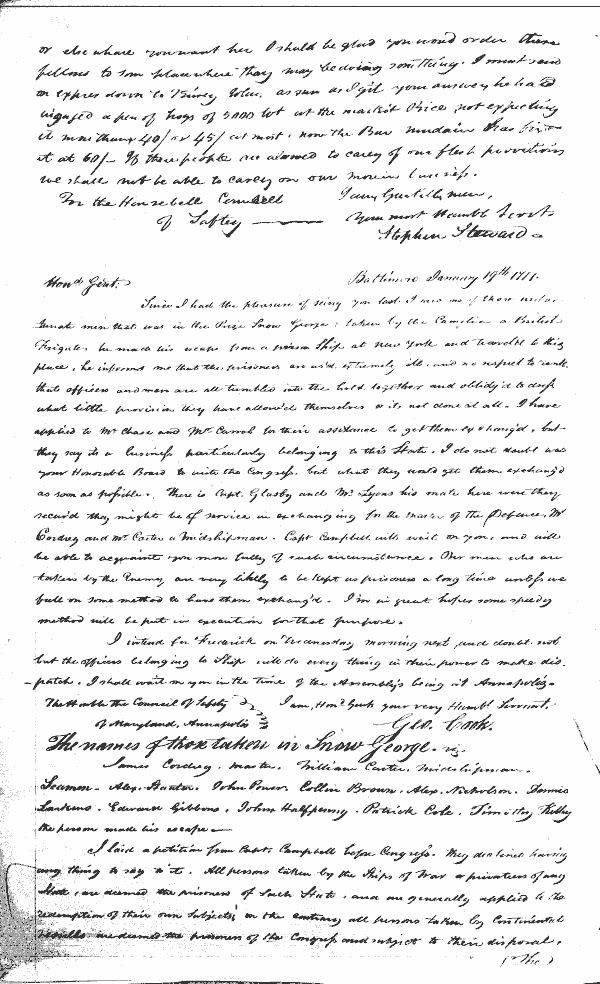 or else where you want her I should be glad you woud order these
fellows to som place where they may be doing somthing. I must send
an expres down to as sun as I git your answer he had
ingaged a pen of hogs of 5000 wt at the market Price not expecting
it more than 40/ or 45/ at most, now the has
it at 60/- If those people are alowed to carey of our flesh provitions
we shall not be able to carey on our business.
For the Honsebell I am Gentillmen,
of Saftey Your most Humble Servt
Stephen Steward
Honde Gent. Baltimore January 19th
Since I had the pleasure of seing you last I see one of those unfor-
tunate men that was in the Prize Snow George, taken by the Camelia a British
Frigate, he made his escape from a prison Ship at New York and travel'd to this
place, he informs me that the prisoners are us'd extremely ill, and no respect to rank
that officers and men are all tumbled into the hold together and oblidg'd to dress
what little provision they have allow'd themselves or its not done at all. I have
applied to Mr Chase and Mr Carrol for their assistance to get them exchang'd, but
they say its a business particularly belonging to this State. I do not doubt was
your Honorable Board to write the Congress, but what they would get them exchang'd
as soon as possible. There is Capt. Glasby and Mr Lyons his mate here were they
secur'd they might be of service in exchanging for the master of the Defence, Mr
Cordrey and Mr Carter a Midshipman. Capt Campbell will wait on you, and will
be able to acquaint you more fully of such circumstance. Our men who are
taken by the Enemy are very likely to be kept as prisoners a long time unless we
fall on some method to have them exchang'd. I'm in great hopes some speedy
method will be put in execution for that purpose.
I intend for Frederick on Wednesday morning next, and doubt not
but the officers belonging to Ship will do every thing in their power to make dis-
patch. I shall wait on you in the time of the Assembly's being at Annapolis
The Honble the Council of Safety I am, Hond Gents your very Humbl Servant.
of Maryland, Annapolis Geo. Cook.
The names of those taken in Snow George. viz.
James Cordrey, Master. William Carter, Midshipman.
Seamen - Alex. Baxter. John Power. Collin Brown. Alex. Nicholson. Dennis
Larkins. Edward Gibbons. John Halfpenny. Patrick Cole. Timothy Kelley
the person made his escape
I laid a petition from Capt. Campbell before Congress. They declined having
any thing to say to it. All persons taken by the Ships of War or privateers of any
State, are deemed the prisoners of such State, and are generally applied to the
redemption of their own subjects; on the contrary all persons taken by Continental
vessells are deemed the prisoners of the Congress and subject to their disposal.
(The)